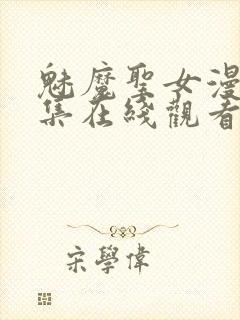 魅魔聖女漫
集在綫觀看
宋學偉